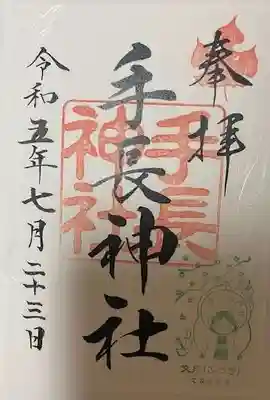 奉拝
手長神社
手長
神社
令和五年七月二十三日